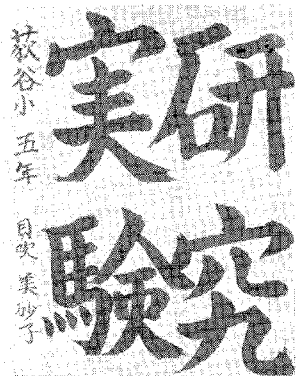 研究
実験
荻谷小 五年
目次 美砂子